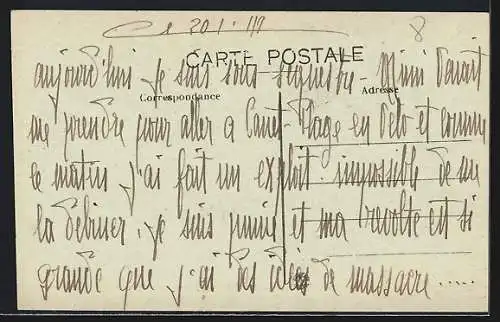 Ce 20.1.19
8
CARTE POSTALE
aujourd'hui je suis sous séquestre - Mimi venait
Correspondance
Adresse
me prendre pour aller a Canet-Plage en vélo et comme
ce matin j'ai fait un exploit impossible de me
la débiner. je suis punie et ma révolte est si
grande que j'ai des idées de massacre.....